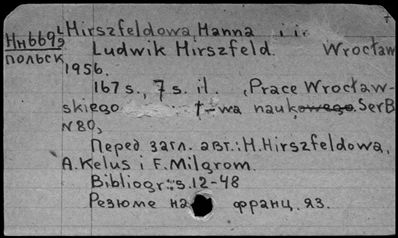 Нн669₂ Hirszfeldowa, Hanna i in
польск Ludwik Hirszfeld. Wrocław
1956.
167 s., 7 s. il. (Prace Wrocław-
skiego t-wa naukowego. Ser B
N80)
Перед загл. авт.: H. Hirszfeldowa,
A. Kelus i F. Milgrom.
Bibliogr.: s. 12-48
Резюме на франц. яз.